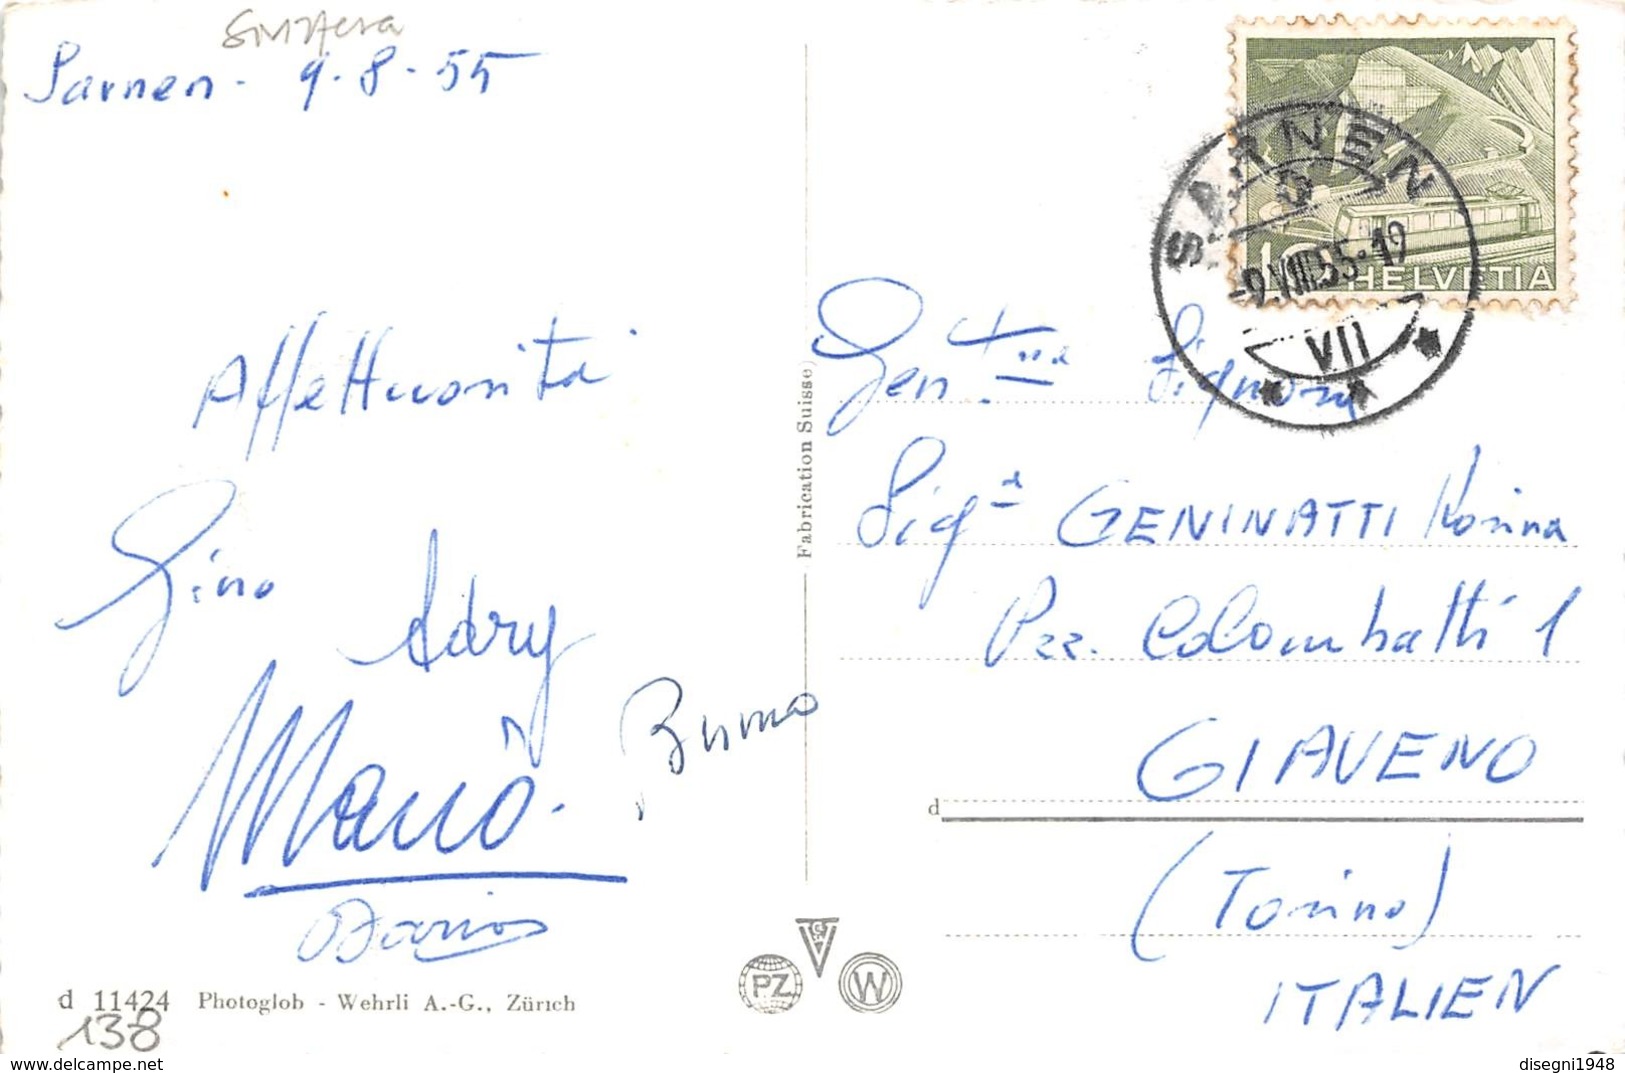 Svizzera
Sarnen - 9-8-55
Affettuosità
Gino
Adry
Mario
Bruno
Dario
d 11424 Photoglob - Wehrli A.-G., Zürich
138
Fabrication Suisse
PZ
W
10 HELVETIA
SARNEN
-9.VIII.55-19
VII
Gen.tma Signora
Sigra GENINATTI Rosina
Pzz. Colombatti 1
GIAVENO
d
(Torino)
ITALIEN
disegni1948